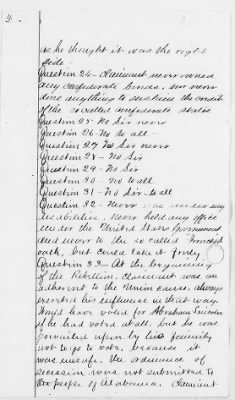 4.
as he thought it was the right
side—
Question 24— Claimant never owned
any confederate bonds, nor never
done anything to sustain the credit
of the so called confederate states
Question 25— No Sir never
Question 26— No to all—
Question 27 No Sir never
Question 28— No Sir
Question 29— No Sir
Question 30— No to all
Question 31— No Sir to all
Question 32— Never was under any
disabilities, never held any office
under the United States Government
and never to the so called
oath, but could take it freely
Question 33— At the beginning
of the Rebellion, Claimant was an
adherent to the Union cause, always
exerted his influence in that way.
Would have voted for Abraham Lincoln
if he had voted at all. but he was
prevailed upon by his family
not to go to vote, because it
was unsafe. The ordinance of
secession was not submitted to
the people of Alabama. Claimant